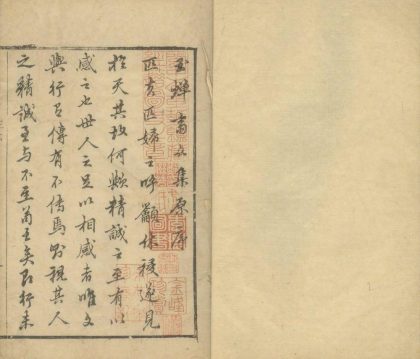 玉蟬齋文集原序
匹夫匹婦之吁籲休祲遂見
於天其故何歟精誠之至有以
感之也世人之足以相感者唯文
與行了傳有不傳焉則視其人
之精誠至与不至苟至矣即行未